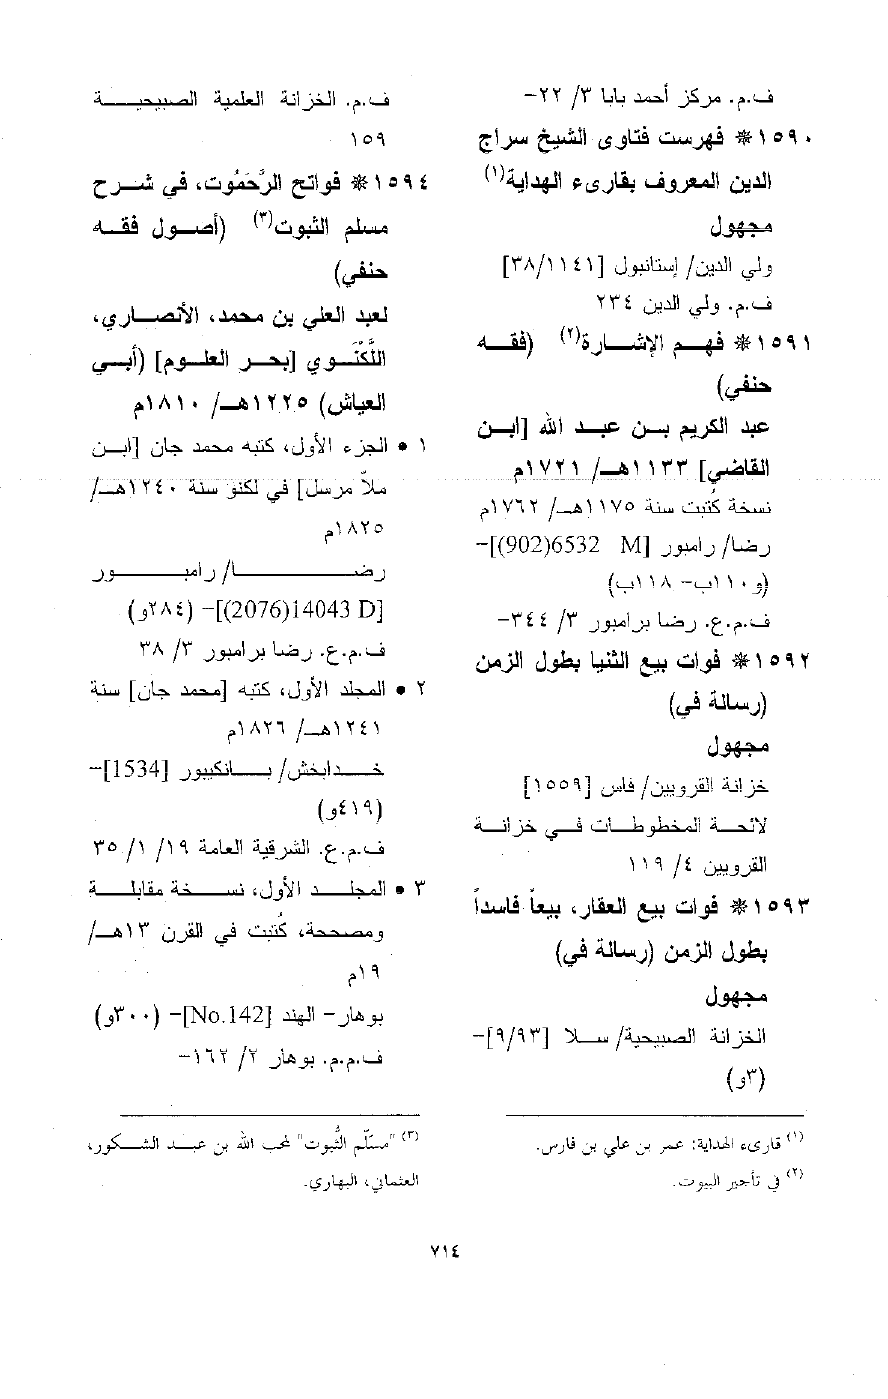 ف.م. مركز أحمد بابا ٣/ ٢٢-
١٥٩٠* فهرست فتاوى الشيخ سراج
الدين المعروف بقارىء الهداية(١)
مجهول
ولي الدين/ إستانبول [٣٨/١١٤١]
ف.م. ولي الدين ٢٣٤
١٥٩١* فهم الإشارة(٢) (فقه
حنفي)
عبد الكريم بن عبد الله [ابن
القاضي] ١١٣٣هـ/ ١٧٢١م
نسخة كُتبت سنة ١١٧٥هـ/ ١٧٦٢م
رضا/ رامبور [M 6532(902)]-
(و١١٠ب- ١١٨ب)
ف.م.ع. رضا برامبور ٣/ ٣٤٤-
١٥٩٢* فوات بيع الثنيا بطول الزمن
(رسالة في)
مجهول
خزانة القرويين/ فاس [١٥٥٩]
لائحة المخطوطات في خزانة
القرويين ٤/ ١١٩
١٥٩٣* فوات بيع العقار، بيعاً فاسداً
بطول الزمن (رسالة في)
مجهول
الخزانة الصبيحية/ سلا [٩/٩٣]-
(٣و)
(١) قارىء الهداية: عمر بن علي بن فارس.
(٢) في تأجير البيوت.
ف.م. الخزانة العلمية الصبيحية
١٥٩
١٥٩٤* فواتح الرَّحَمُوت، في شرح
مسلم الثبوت(٣) (أصول فقه
حنفي)
لعبد العلي بن محمد، الأنصاري،
اللَّكْنَوي [بحر العلوم] (أبي
العياش) ١٢٢٥هـ/ ١٨١٠م
١ • الجزء الأول، كتبه محمد جان [ابن
ملاّ مرسل] في لكنو سنة ١٢٤٠هـ/
١٨٢٥م
رضا/ رامبور
[D 14043(2076)]- (٢٨٤و)
ف.م.ع. رضا برامبور ٣/ ٣٨
٢ • المجلد الأول، كتبه [محمد جان] سنة
١٢٤١هـ/ ١٨٢٦م
خدابخش/ بانكيبور [1534]-
(٤١٩و)
ف.م.ع. الشرقية العامة ١٩/ ١/ ٣٥
٣ • المجلد الأول، نسخة مقابلة
ومصححة، كُتبت في القرن ١٣هـ/
١٩م
بوهار- الهند [No.142]- (٣٠٠و)
ف.م.م. بوهار ٢/ ١٦٢-
(٣) "مسلّم الثُّبوت" لمحب الله بن عبد الشكور،
العثماني، البهاري.
٧١٤